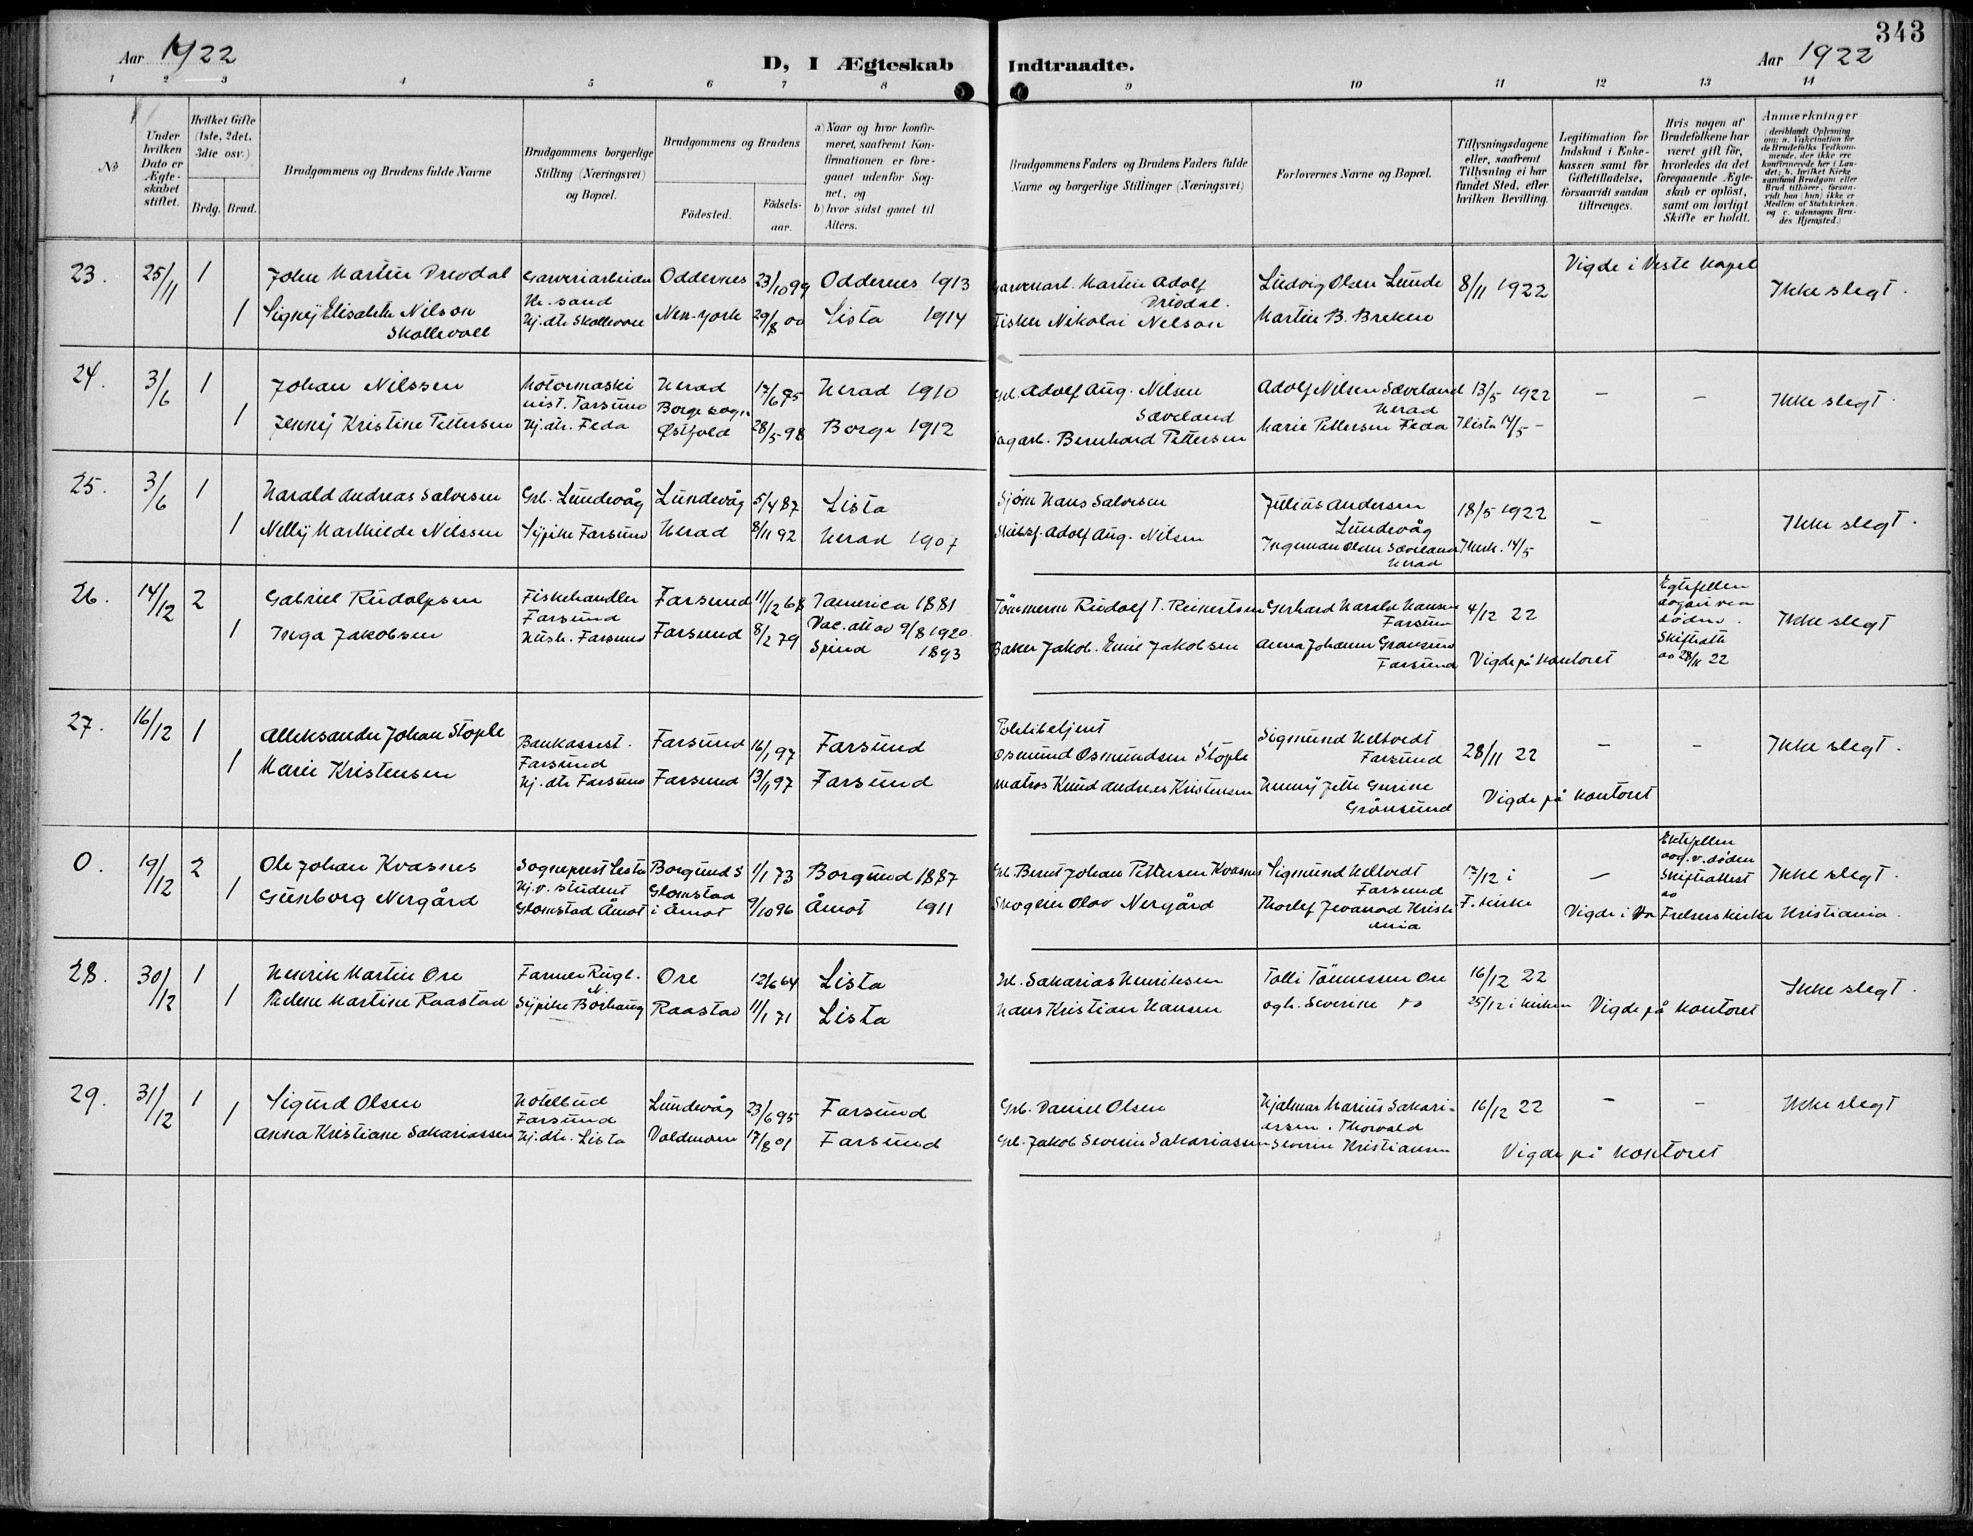 343
Aar 1922
D, I Ægteskab Indtraadte.
Aar 1922
1 2 3 4 5 6 7 8 9 10 11 12 13 14
No
Under hvilken Dato er Ægteskabet stiftet.
Hvilket Gifte (1ste, 2det, 3die osv.)
Brdg. Brud.
Brudgommens og Brudens fulde Navne
Brudgommens borgerlige Stilling (Næringsvei) og Bopæl.
Brudgommens og Brudens
Fødested.
Fødsels-aar.
a) Naar og hvor konfirmeret, saafremt Konfirmationen er foregaaet udenfor Sognet, og
b) hvor sidst gaaet til Alters.
Brudgommens Faders og Brudens Faders fulde Navne og borgerlige Stillinger (Næringsvei)
Forlovernes Navne og Bopæl.
Tillysningsdagene eller, saafremt Tillysning ei har fundet Sted, efter hvilken Bevilling.
Legitimation for Indskud i Enkekassen samt for Giftetilladelse, forsaavidt saadan tiltrænges.
Hvis nogen af Brudefolkene har været gift før, hvorledes da det foregaaende Ægteskab er opløst, samt om lovligt Skifte er holdt.
Anmærkninger
(deriblandt Oplysning om: a. Vakcination for de Brudefolks Vedkommende, der ikke ere konfirmerede her i Landet; b. hvilket Kirkesamfund Brudgom eller Brud tilhører, forsaavidt han (hun) ikke er Medlem af Statskirken, og c. udensogns Brudes Hjemsted.)
23. 25/11 1 John Martin Drivdal Garveriarbeider Oddernes 23/10 99 Oddernes 1913 Garveriarb. Martin Adolf Drivdal. Ludvig Olsen Lunde 8/11 1922 Vigde i Veste Kapel Ikke slegt.
Kr.sand
1 Signy Elisabeth Nilson Skollevoll Hj.dtr. Skollevoll New-York 29/8 00 Lista 1914 Fisker Nikolai Nelson Martin B. Brekne
24. 3/6 1 Johan Nilssen Motormaskinist. Farsund Herad 17/6 95 Herad 1910 Grb. Adolf Aug. Nilsen Sæveland Adolf Nilsen Sæveland Herad 13/5 1922 – – Ikke slegt.
1 Jenny Kristine Pettersen Hj.dtr. Feda Borge sogn Østfold 28/5 98 Borge 1912 Sagarb. Bernhard Pettersen Marie Pettersen Feda I lista 14/5 –
25. 3/6 1 Harald Andreas Salvesen Grb. Lundevåg Lundevåg 5/4 87 Lista Sjøm Hans Salvesen Julius Andersen Lundevåg 18/5 1922 – Ikke slegt.
1 Nelly Mathilde Nilssen Sypike Farsund Herad 8/11 92 Herad 1907 Skibsf. Adolf Aug. Nilsen Ingeman Olsen Sæveland Herad I Herh. 14/5
26. 14/12 2 Gabriel Rudolfsen Fiskehandler Farsund Farsund 11/12 68 I america 1881 Rudolf T. Reinertsen Gerhard Harald Hansen Farsund 4/12 22 Egtefellen avgån ved døden. Skifteatt av 28/11 22 Ikke slegt
Vac. att av 9/8 1920
1 Inga Jakobsen Hush. Farsund Farsund 8/2 79 Spind 1893 Baker Jakob Emil Jakobsen Anna Johanne Grønsund Farsund Vigde på kontoret
27. 16/12 1 Alleksander Johan Stople Bankassist. Farsund Farsund 16/1 97 Farsund Politibetjent Osmund Osmundsen Stople Sigmund Heltvedt Farsund 28/11 22 – – Ikke slegt.
1 Marie Kristensen Hj.dtr Farsund Farsund 13/11 97 Farsund Matros Knud Andreas Kristensen Henny Jette Gurine Grønsund Vigde på kontoret
0. 19/12 2 Ole Johan Kvasnes Sogneprest Lista Borgund S 1/1 73 Borgund 1887 Grb. Bernt Johan Pettersen Kvasnes Sigmund Heltvedt Farsund 17/12 i F. kirke – Ektefellen avg. v. døden Skifteattest av Ikke slegt.
1 Gunborg Nergård Hj.v. student Glomstad Åmot Glomstad i Åmot 9/10 96 Åmot 1911 Skogeier Olav Nergård Thorlef Kristiania Vigde i Vår Frelsers kirke Kristiania.
28. 30/12 1 Henrik Martin Ore Farmer Ore 12/6 64 Lista Grb. Sakarias Henriksen Tolli Tönnessen Ore 16/12 22 Ikke slegt.
1 Helene Martine Raastad Sypike Borhaug Raastad 11/1 71 Lista Hans Kristian Hansen og h. Severine do 25/12 i kirken Vigde på kontoret
29. 31/12 1 Sigurd Olsen Hotelbud Farsund Lundevåg 23/6 95 Farsund Grb. Daniel Olsen Hjalmar Marius Sakariassen. Thorvald 16/12 22 – – Ikke slegt
1 Anna Kristiane Sakariassen Hj.dtr. Lista 17/8 01 Farsund Grb. Jakob Severin Sakariassen Severin Kristiansen Vigde på kontoret